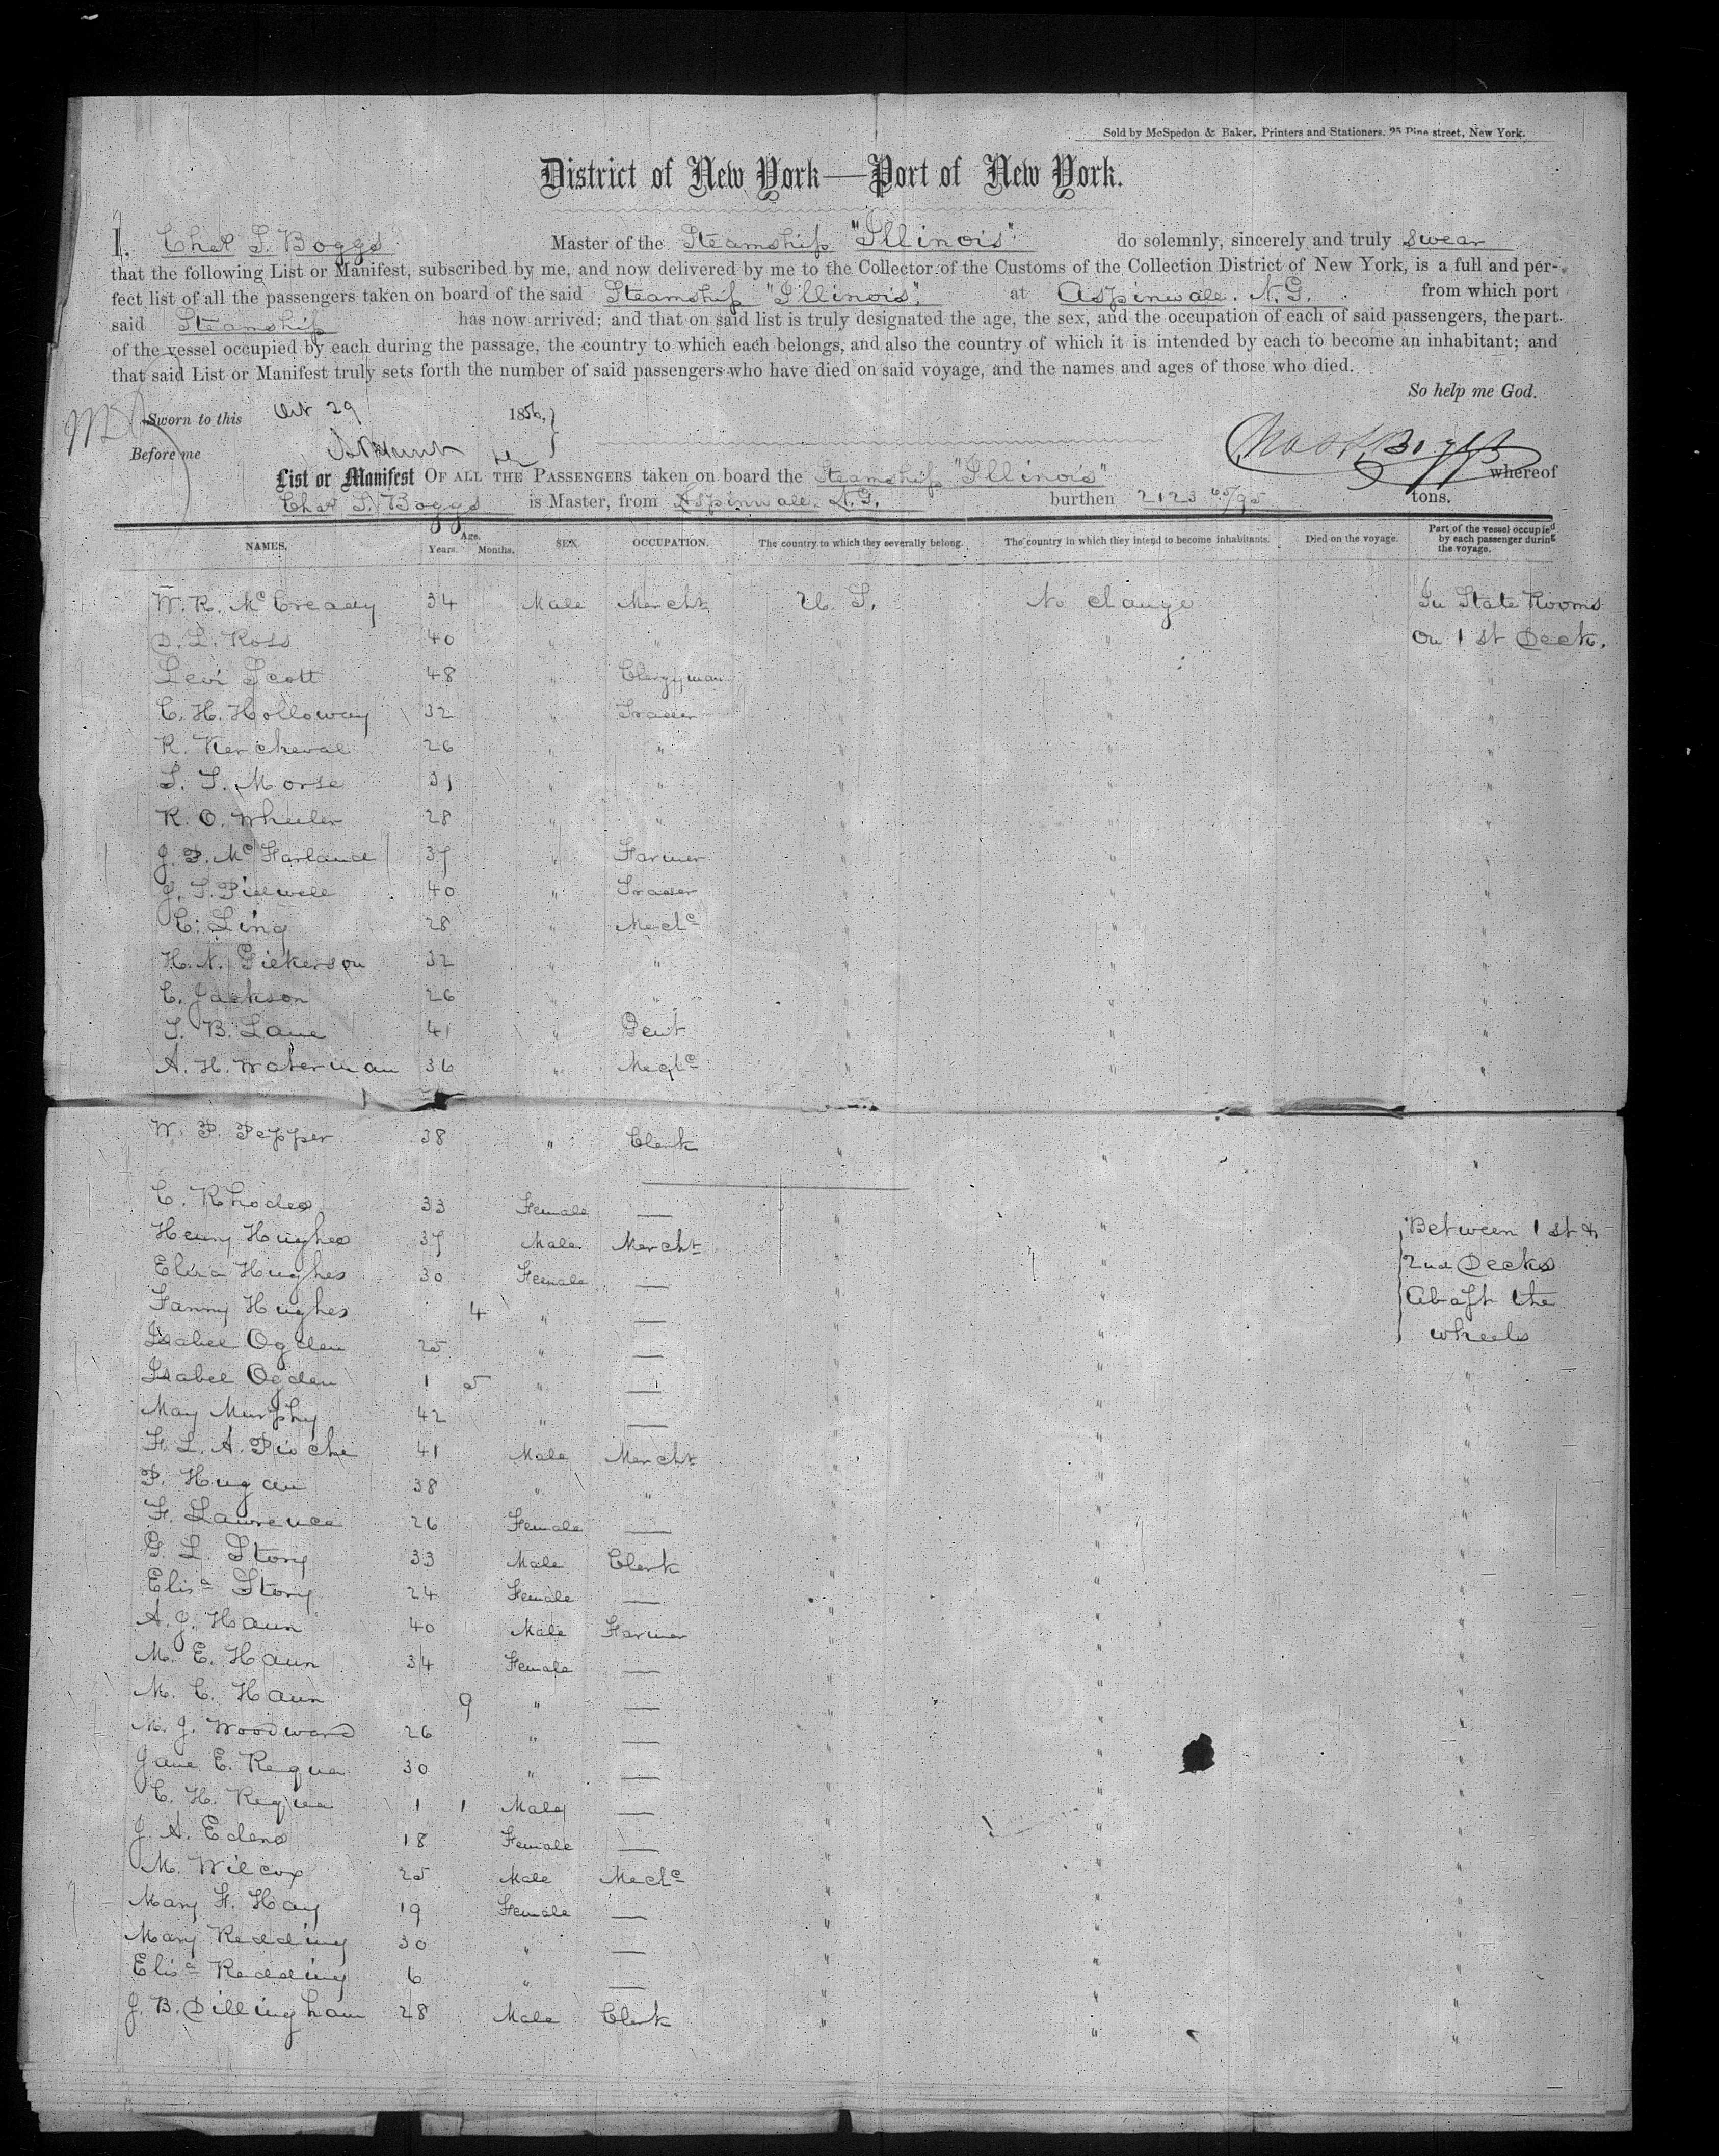 Sold by McSpedon & Baker, Printers and Stationers, 25 Pine street, New York.
District of New York—Port of New York.
I. Chas S. Boggs Master of the Steamship "Illinois" do solemnly, sincerely and truly swear
that the following List or Manifest, subscribed by me, and now delivered by me to the Collector of the Customs of the Collection District of New York, is a full and per-
fect list of all the passengers taken on board of the said Steamship "Illinois" at Aspinwall. N.G. from which port
said Steamship has now arrived; and that on said list is truly designated the age, the sex, and the occupation of each of said passengers, the part
of the vessel occupied by each during the passage, the country to which each belongs, and also the country of which it is intended by each to become an inhabitant; and
that said List or Manifest truly sets forth the number of said passengers who have died on said voyage, and the names and ages of those who died.
So help me God.
Sworn to this Oct 29 1856,
Before me
Chas S. Boggs
List or Manifest OF ALL THE PASSENGERS taken on board the Steamship "Illinois" whereof
Chas S. Boggs is Master, from Aspinwall. N.G. burthen 2123 65/95 tons.
NAMES. Age. Years. Months. SEX. OCCUPATION. The country to which they severally belong. The country in which they intend to become inhabitants. Died on the voyage. Part of the vessel occupied by each passenger during the voyage.
W. R. McCready 34 Male Mercht U. S. No change In State Rooms
D. L. Ross 40 " " " " On 1st Deck.
Levi Scott 48 " Clergyman " " "
C. H. Holloway 32 " Trader " " "
R. Kercheval 26 " " " " "
S. S. Morse 31 " " " " "
R. O. Wheeler 28 " " " " "
J. P. McFarland 37 " Farmer " " "
J. S. Pidwell 40 " Trader " " "
C. Ling 28 " Mechc " " "
H. N. Dickerson 32 " " " " "
C. Jackson 26 " " " " "
S. B. Lane 41 " Gent " " "
A. H. Waterman 36 " Mechc " " "
W. P. Pepper 38 " Clerk " " "
C. Rhodes 33 Female — " " Between 1st &
Henry Hughes 37 Male Mercht " " 2nd Decks
Eliza Hughes 30 Female — " " Abaft the
Fanny Hughes 4 " — " " wheels
Isabel Ogden 25 " — " " "
Isabel Ogden 1 5 " — " " "
May Murphy 42 " — " " "
F. L. A. Pioche 41 Male Mercht " " "
P. Hugan 38 " " " " "
F. Lawrence 26 Female — " " "
G. L. Story 33 Male Clerk " " "
Elisa Story 24 Female — " " "
A. J. Haun 40 Male Farmer " " "
M. E. Haun 34 Female — " " "
M. C. Haun 9 " — " " "
M. J. Woodward 26 " — " " "
Jane E. Requa 30 " — " " "
C. H. Requa 1 1 Male — " " "
J. A. Edens 18 Female — " " "
M. Wilcox 25 Male Mechc " " "
Mary F. Hay 19 Female — " " "
Mary Redding 30 " — " " "
Elisa Redding 6 " — " " "
J. B. Dillingham 28 Male Clerk " " "